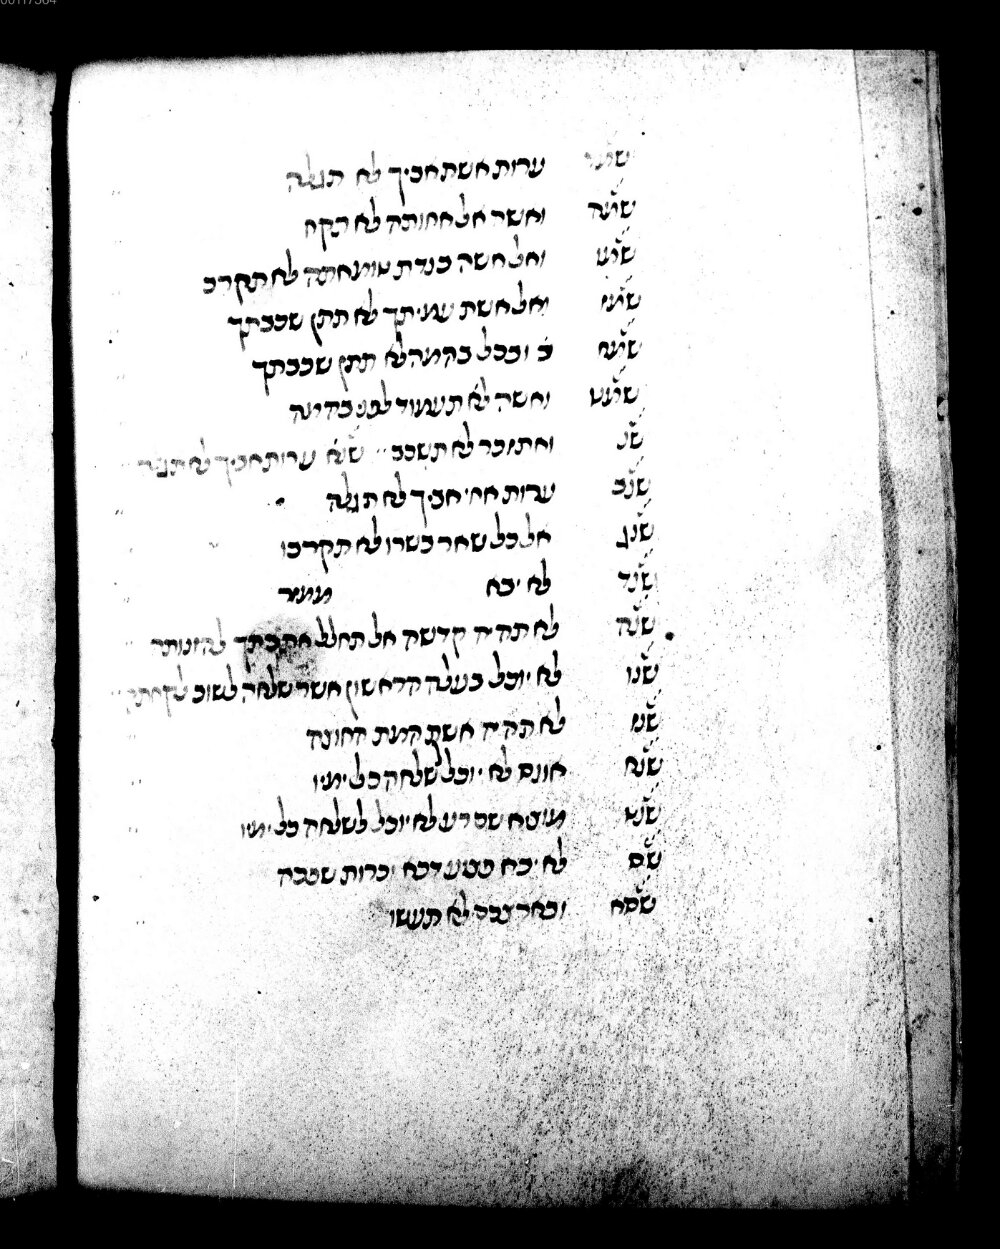 שמד ערות אשת אביך לא תגלה
שמה ואשה אל אחותה לא תקח
שמו ואל אשה בנדת טומאתה לא תקרב
שמז ואל אשת עמיתך לא תתן שכבתך
שמח ובכל בהמה לא תתן שכבתך
שמט ואשה לא תעמוד לפני בהמה
שנ ואת זכר לא תשכב שנא ערות אביך לא תגלה
שנב ערות אחי אביך לא תגלה
שנג אל כל שאר בשרו לא תקרבו
שנד לא יבא ממזר
שנה לא תהיה קדשה אל תחלל את בתך להזנותה
שנו לא יוכל בעלה הראשון אשר שלחה לשוב לקחתה
שנז לא תהיה אשת המת החוצה
שנח אונס לא יוכל שלחה כל ימיו
שנט מוציא שם רע לא יוכל לשלחה כל ימיו
שס לא יבא פצוע דכא וכרות שפכה
שסא ובארצכם לא תעשו